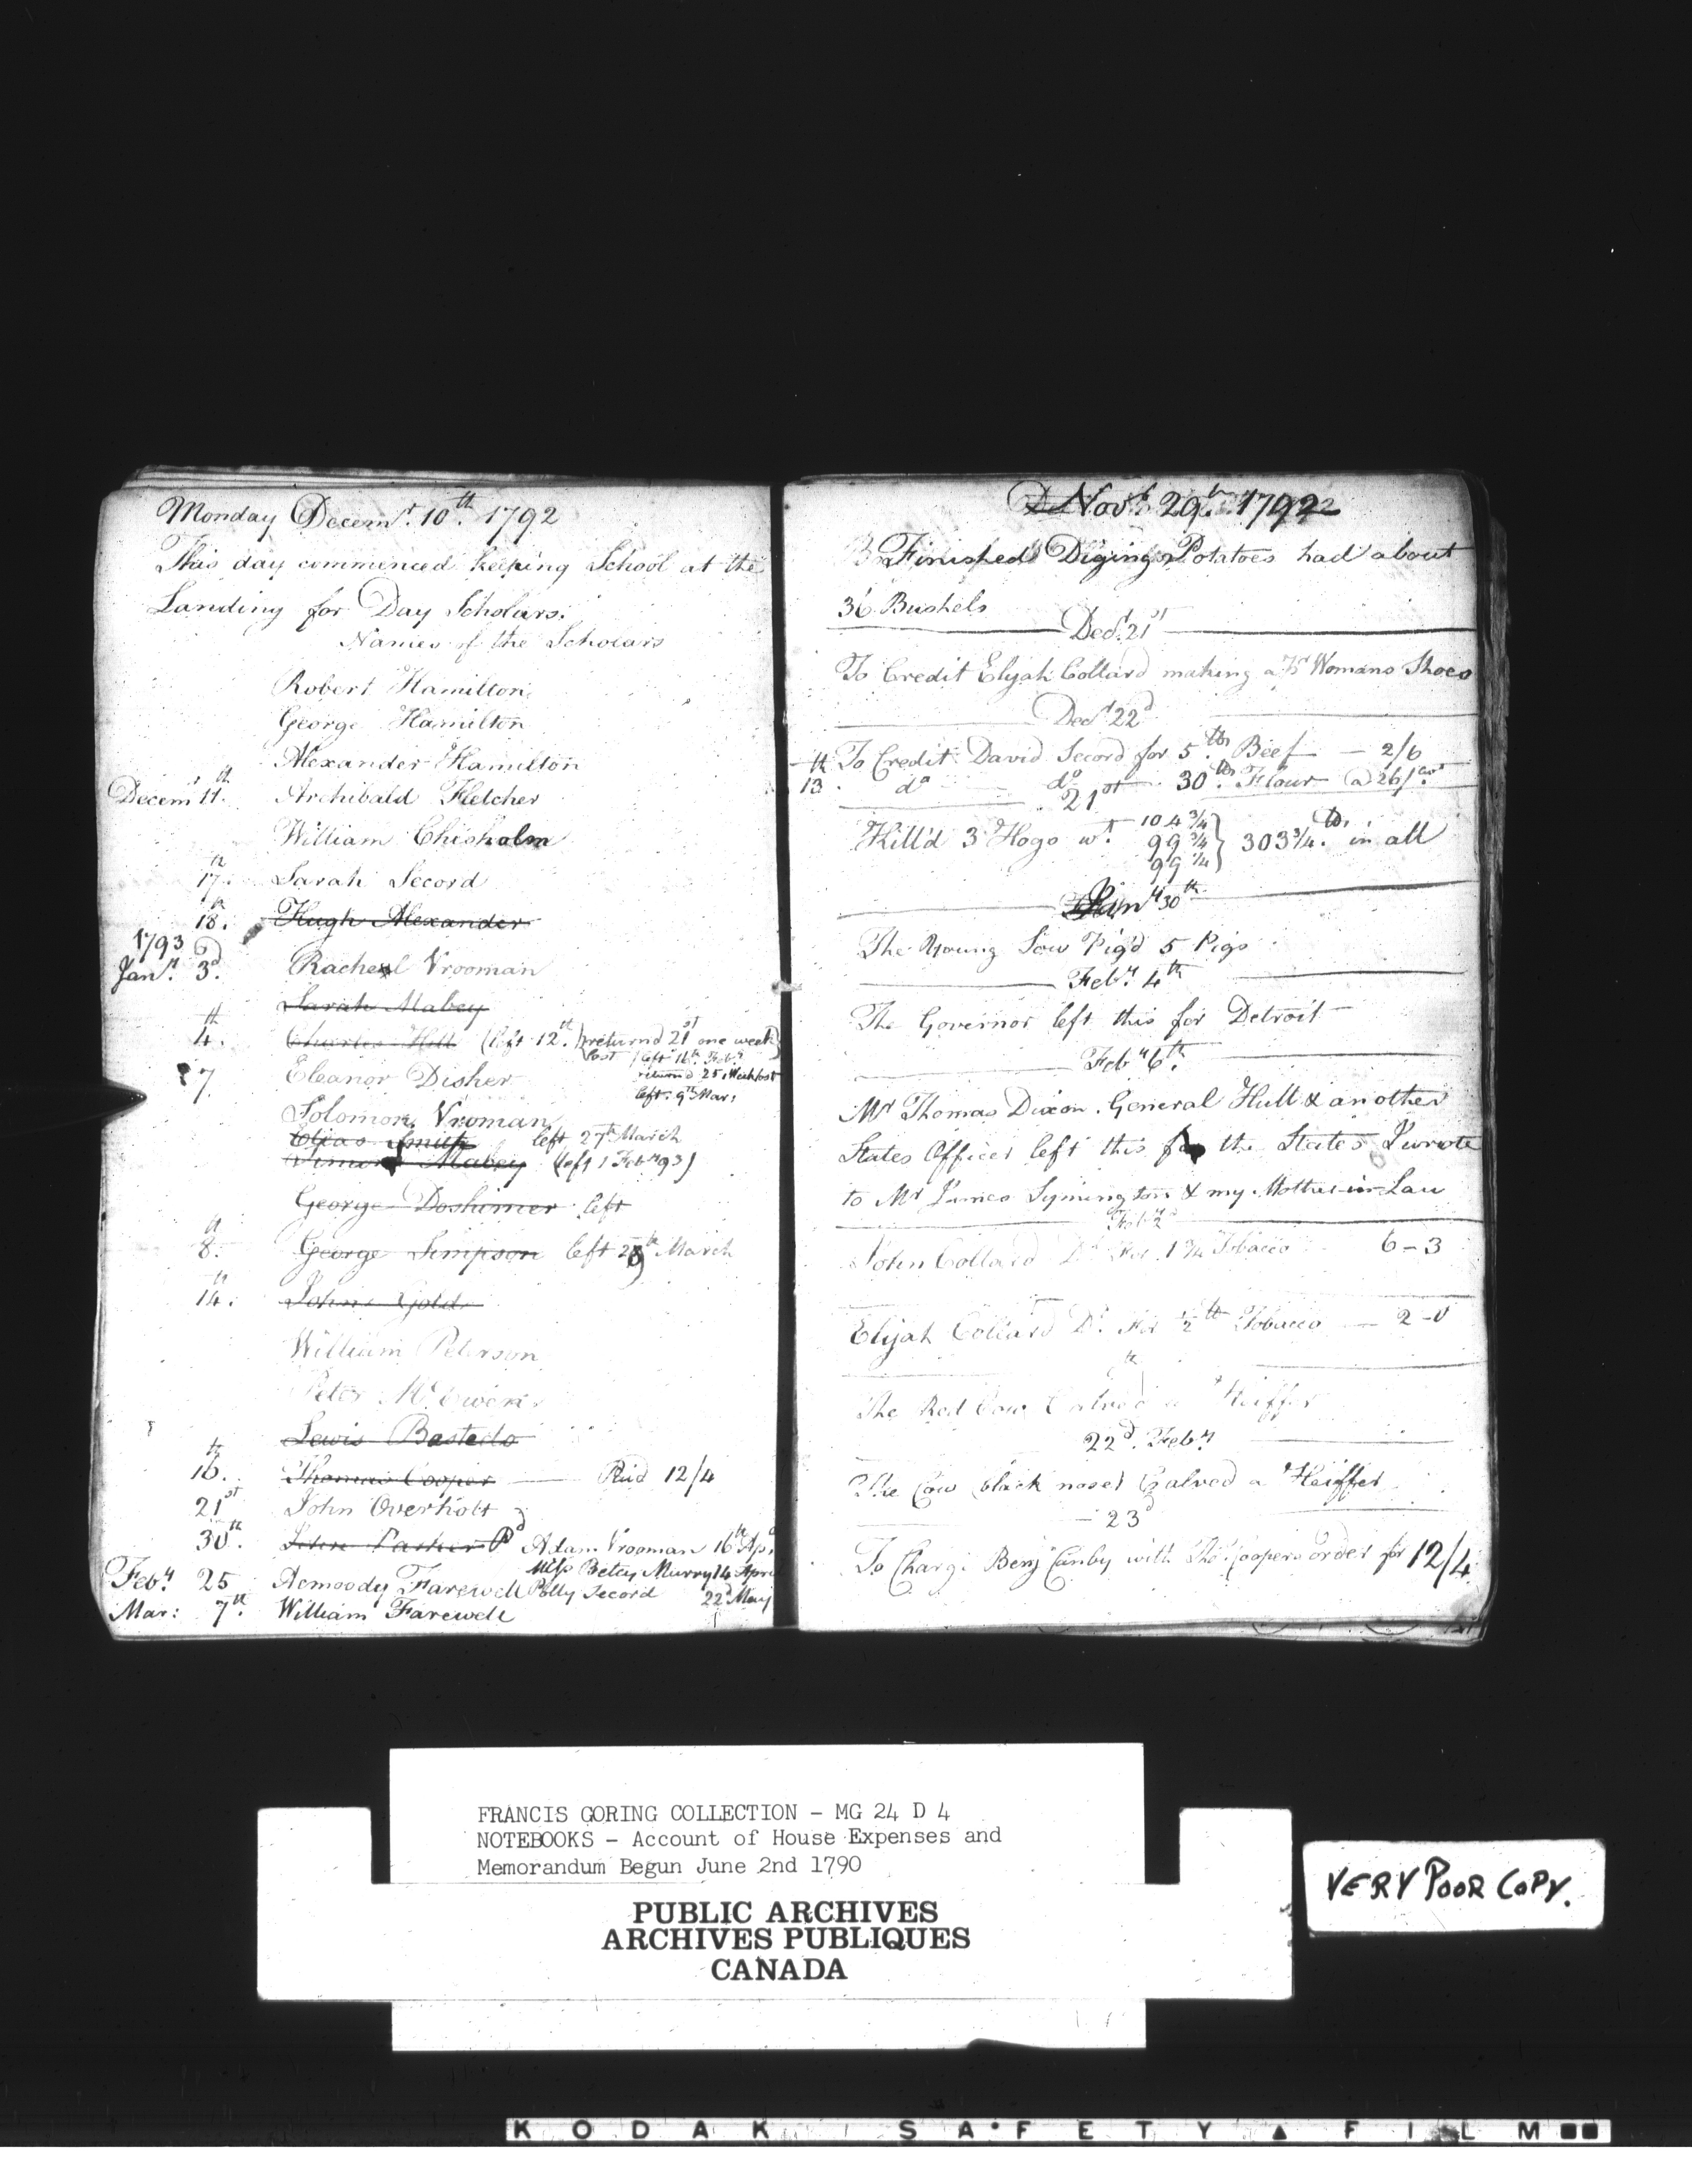 Monday Decemr. 10th. 1792
This day commenced keeping School at the
Landing for Day Scholars.
Names of the Scholars
Robert Hamilton
George Hamilton
Alexander Hamilton
Decemr 11th. Archibald Fletcher
William Chisholm
17th. Sarah Secord
18th. Hugh Alexander
1793
Jany. 3d. Rachel Vrooman
Sarah Mabey
4th. Charles Hill (left 12th.) return'd 21st one week
lost left 16th. Feby
7 Eleanor Disher return'd 25. Week lost
left. 9th Mar:
Solomon Vrooman
Elias Smith left 27th March
Simon Mabey (left 1 Feby 93)
George Doshimer left
8th. George Simpson left 28th March
14th. John Gold
William Peterson
Peter McEwen
Lewis Bastedo
16th. Thomas Cooper Paid 12/4
21st John Overholt
30th. John Parker Pd Adam Vrooman 16th Apr
Miss Betcy Murry 14 Apri
Feby 25 Acmoody Farewell Polly Secord 22d May
Mar: 7th. William Farewell
Novr 29th. 1792
Finished Diging Potatoes had about
36 Bushels
Decr. 21st
To Credit Elijah Collard making a Pr Womans Shoes
Decr 22d
To Credit David Secord for 5 lb. Beef - 2/6
13th. do do 30 lb. Flour @ 26/ Cwt
21st
104 3/4
Kill'd 3 Hogs wt. 99 3/4 303 3/4 lb. in all
99 1/4
Jany 30th
The Young Sow Pig'd 5 Pigs
Feby. 4th
The Governor left this for Detroit
Feby 6th.
Mr Thomas Dixon. General Hull & another
States Officer left this for the States I wrote
to Mr James Symington & my Mother-in-Law
Feby 2
John Collard Dr for 1 3/4 Tobacco 6-3
Elijah Collard Dr. for 1/2 lb Tobacco - 2-0
The Red Cow Calved a Heiffer
22d. Feby
The Cow (black nose) Calved a Heiffer
23d
To Charge Benj Canby with Thos Coopers order for 12/4
FRANCIS GORING COLLECTION - MG 24 D 4
NOTEBOOKS - Account of House Expenses and
Memorandum Begun June 2nd 1790
PUBLIC ARCHIVES
ARCHIVES PUBLIQUES
CANADA
VERY POOR COPY.
KODAK SAFETY FILM